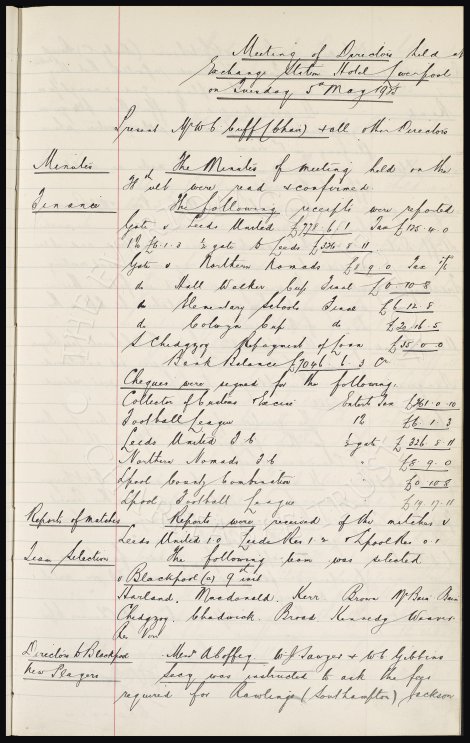 Meeting of Directors held at
Exchange Station Hotel Liverpool
on Tuesday 5th May 1925
Present Mr W C Cuff (Chair) & all other Directors
Minutes The Minutes of meeting held on the
ult were read & confirmed
Finance The following receipts were reported
Gate v Leeds United £778.6.1 Tax £175.4.0
1% £6.1.3 ¼ gate to Leeds £326.8.11
Gate v Northern Nomads £8.9.0 Tax
do Hall Walker Cup Final £0.10.8
do Elementary Schools Final £6.12.8
do Cup do £20.16.5
S Chedgzoy Repayment of Loan £35.0.0
Bank Balance £7046.6.3 Cr
Cheques were signed for the following.
Collector of Customs & Excise Entert. Tax £261.0.10
Football League 1% £6.1.3
Leeds United F C ¼ gate £326.8.11
Northern Nomads F C " £8.9.0
Lpool County Combination " £0.10.8
Lpool Football League " £19.17.11
Reports of matches Reports were received of the matches v
Leeds United 1.0 Leeds Res 1.2 v Lpool Res 0.1
Team Selection The following team was selected
v Blackpool (a) 9th inst
Harland. Macdonald. Kerr Brown McBain Bain
Chedgzoy. Chadwick. Broad Kennedy Weaver
Directors to Blackpool Messrs A Coffey W J Sawyer & W C Gibbins
New Players Secy was instructed to ask the fees
required for Rawlings (Southampton) Jackson